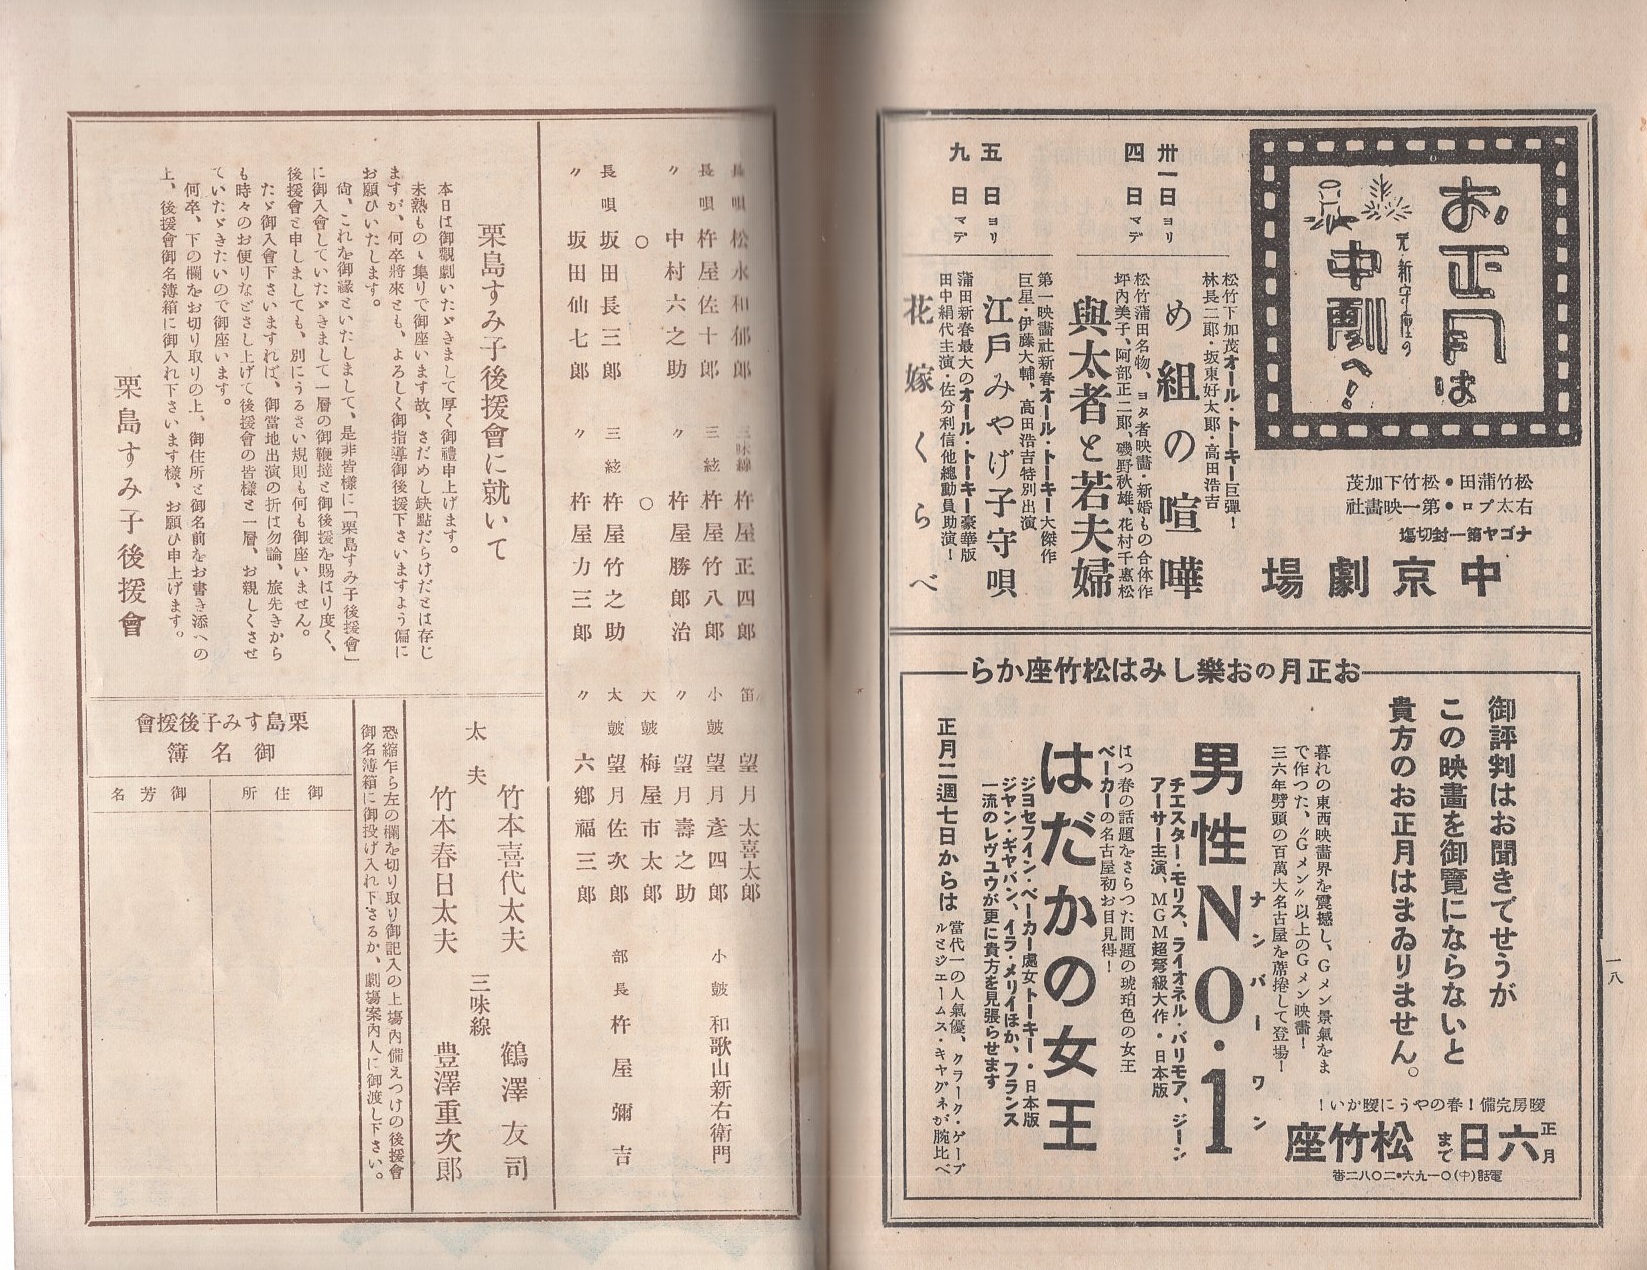 お正月は
元・新守座の
中劇へ!
松竹蒲田・松竹下加茂
右太プロ・第一映畫社
ナゴヤ第一封切塲
中京劇場
卅一日ヨリ
四日マデ
松竹下加茂オール・トーキー巨彈!
林長二郎・坂東好太郎・高田浩吉
め組の喧嘩
松竹蒲田名物、ヨタ者映畫・新婚もの合体作
坪內美子、阿部正二郎、磯野秋雄、花村千惠松
與太者と若夫婦
五日ヨリ
九日マデ
第一映畫社新春オール・トーキー大傑作
巨星・伊藤大輔、高田浩吉特別出演
江戸みやげ子守唄
蒲田新春最大のオール・トーキー豪華版
田中絹代主演・佐分利信他總動員助演!
花嫁くらべ
お正月のお樂しみは松竹座から
御評判はお聞きでせうが
この映畫を御覽にならないと
貴方のお正月はまゐりません。
暖房完備!春のやうに暖かい!
正月六日まで
松竹座
電話(中)〇一九六・二〇八二番
暮れの東西映畫界を震撼し、Gメン景氣をま
で作つた、〝Gメン〟以上のGメン映畫!
三六年劈頭の百萬大名古屋を席捲して登場!
男性NO・1
ナンバーワン
チエスター・モリス、ライオネル・バリモア、ジーン
アーサー主演、MGM超弩級大作・日本版
はつ春の話題をさらつた問題の琥珀色の女王
ベーカーの名古屋初お目見得!
はだかの女王
ジヨセフイン・ベーカー處女トーキー・日本版
ジヤン・ギヤバン、イラ・メリイほか、フランス
一流のレヴユウが更に貴方を見張らせます
正月二週七日からは
當代一の人氣優、クラーク・ゲーブ
ルとジエームス・キヤグネが腕比べ
一八
長唄 松永和郁郎
長唄 杵屋佐十郎
〃 中村六之助
〇
長唄 坂田長三郎
〃 坂田仙七郎
三味線 杵屋正四郎
三絃 杵屋竹八郎
〃 杵屋勝郎治
〇
三絃 杵屋竹之助
〃 杵屋力三郎
笛 望月太喜太郎
小鼓 望月彥四郎
〃 望月壽之助
大鼓 梅屋市太郎
太鼓 望月佐次郎
〃 六鄕福三郎
小鼓 和歌山新右衛門
部長 杵屋彌吉
栗島すみ子後援會に就いて
本日は御觀劇いたゞきまして厚く御禮申上げます。
未熟もの丶集りで御座います故、さだめし缺點だらけだとは存じ
ますが、何卒將來とも、よろしく御指導御後援下さいますよう偏に
お願ひいたします。
尙、これを御緣といたしまして、是非皆樣に「栗島すみ子後援會」
に御入會していたゞきまして一層の御鞭撻と御後援を賜はり度く、
後援會と申しましても、別にうるさい規則も何も御座いません。
たゞ御入會下さいますれば、御當地出演の折は勿論、旅先きから
も時々のお便りなどさし上げて後援會の皆樣と一層、お親しくさせ
ていたゞきたいので御座います。
何卒、下の欄をお切り取りの上、御住所と御名前をお書き添への
上、後援會御名簿箱に御入れ下さいます樣、お願ひ申上げます。
栗島すみ子後援會
太夫
竹本喜代太夫
竹本春日太夫
三味線
鶴澤友司
豊澤重次郎
恐縮乍ら左の欄を切り取り御記入の上塲內備えつけの後援會
御名簿箱に御投げ入れ下さるか、劇塲案內人に御渡し下さい。
栗島すみ子後援會
御名簿
御住所
御芳名